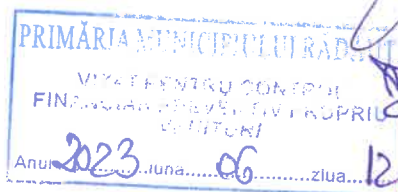 PRIMĂRIA MUNICIPIULUI RĂDĂUȚI
VIZAT PENTRU CONTROL
FINANCIAR PREVENTIV PROPRIU
VENITURI
Anul 2023 luna 06 ziua 12